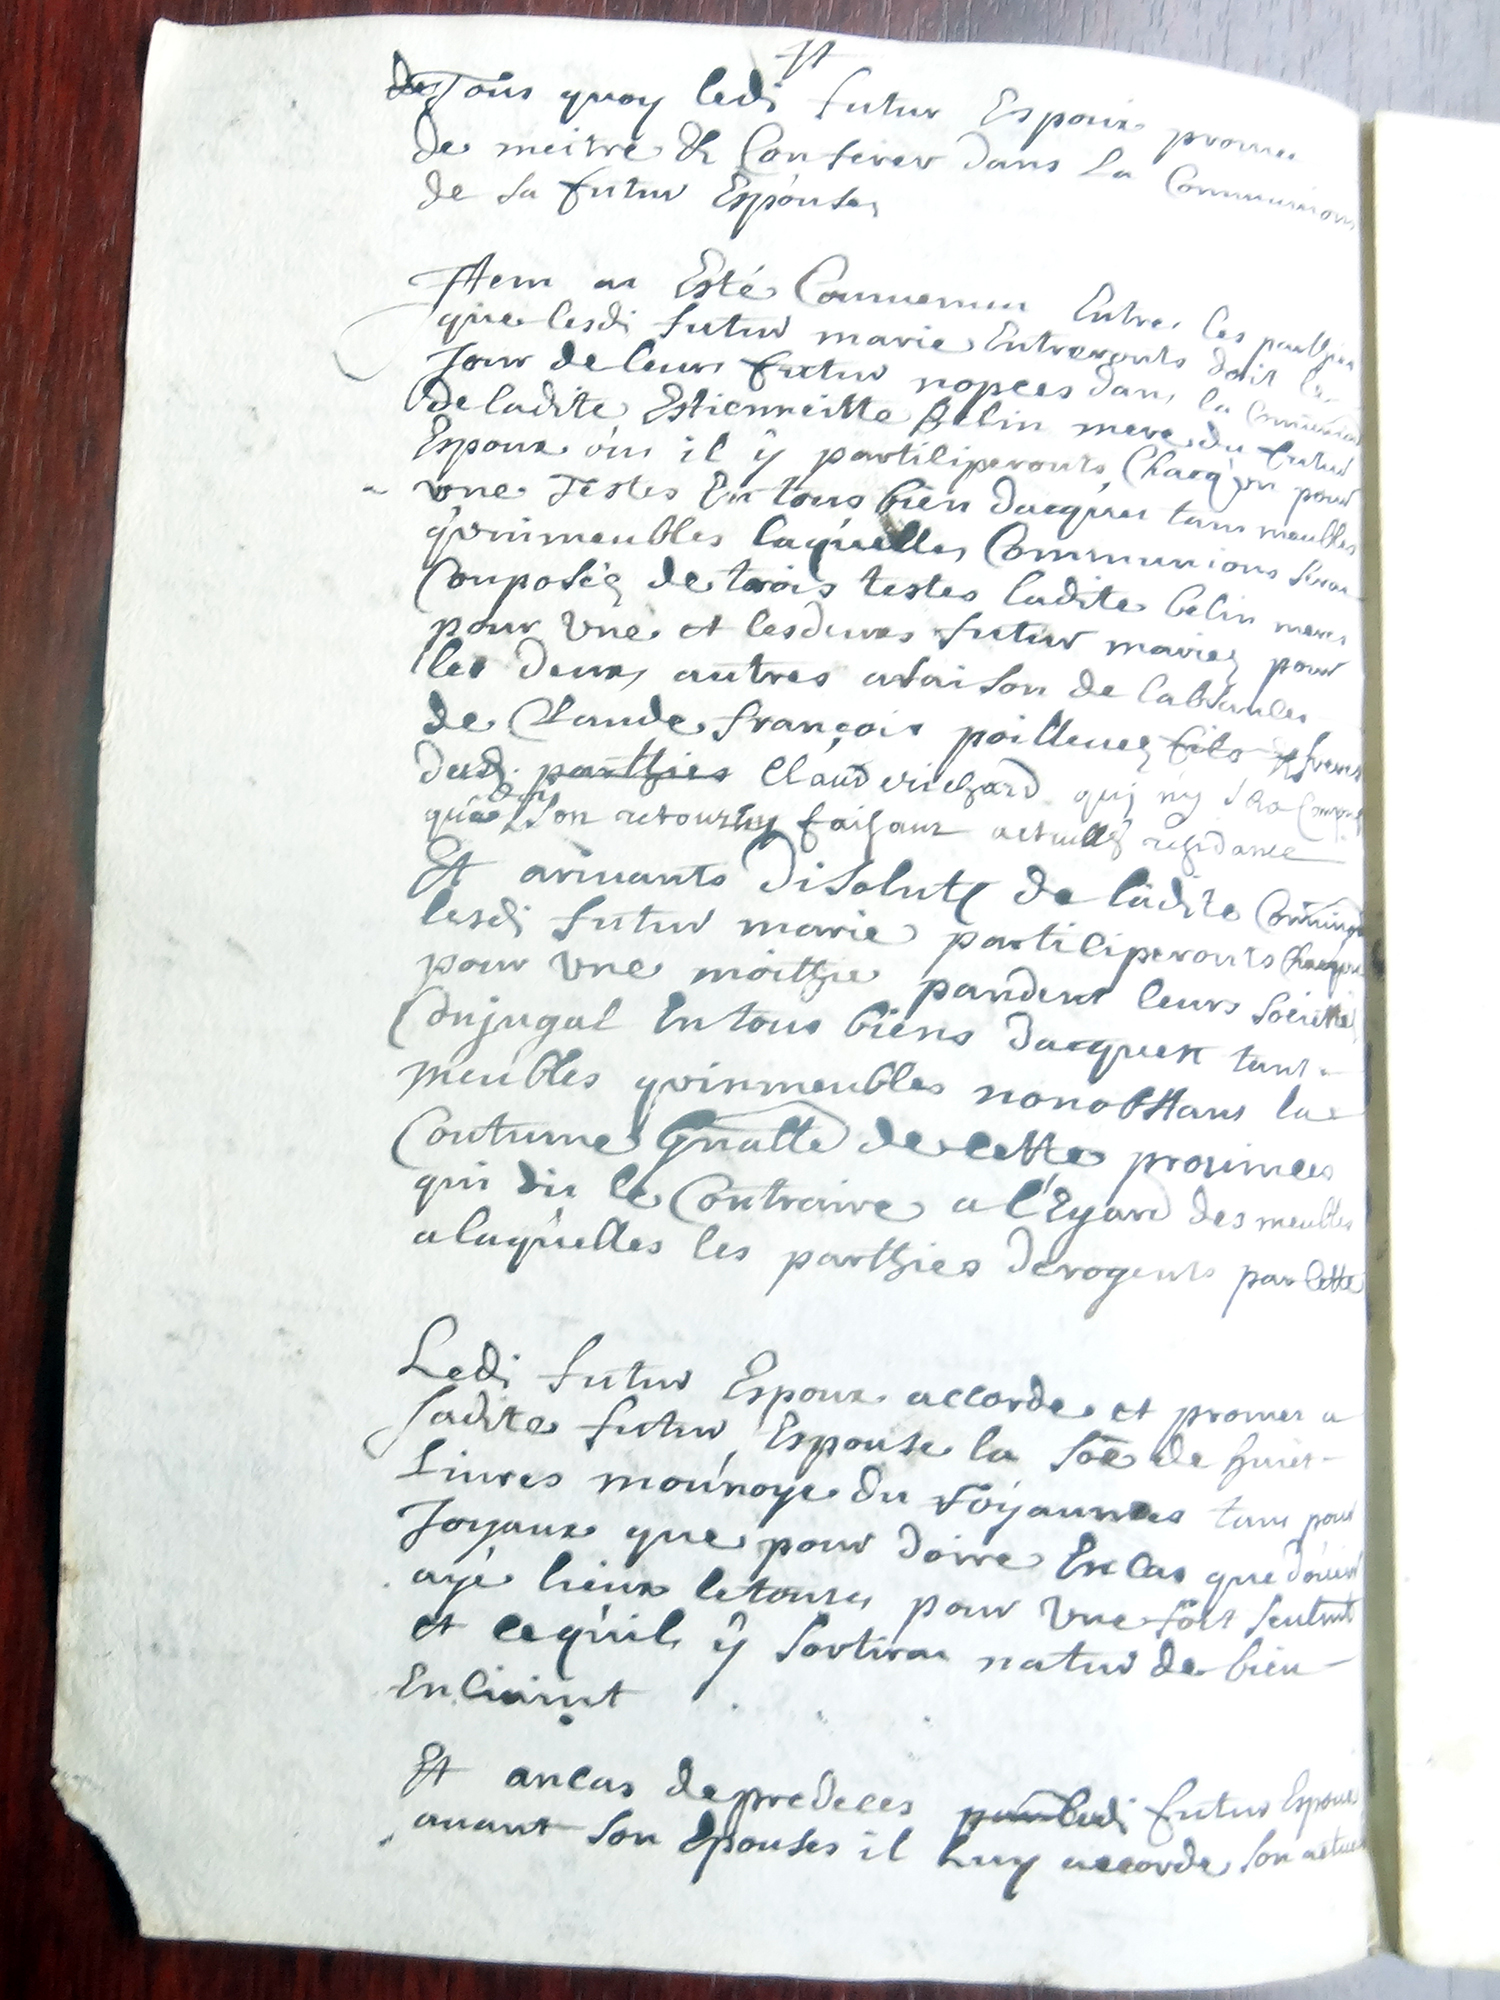 de Tous quoy ledi futur Espoux promet
de meitre & Conferer dans La Communions
de Sa futur Espouse
Item a Esté Conuenuu Entre les parthies
que lesdi futur marie Entreronts doit le
Jour de leurs futur nopces dans la Communion
de ladite Estiennette Belin mere du futur
Espoux ou il ÿ partiliperonts Chacq'un pour
vne Testes En tous bien dacquer tant meubles
qu'inmeubles laquelles Communions Sera
Composéé de trois testes ladite belin mere
pour vne et lesdeux futur mariez pour
les deux autres araison de labsances
de Claude françois poilleuez fils freres
dudi parthies Claud vrichard qui n'y Sera Compris
que dez Son retour ny faisant actuellez residance
Et ariuants disolute de ladite Communion
lesdi futur marie partiliperonts chacque
pour vne moithie pandent leurs Societté
Conjugal En tous biens dacquer tant
meubles qu'inmeubles nonobstans la
Coutume Gnalle de cette prouinces
qui dit le Contraire a l'Egard des meubles
alaquelles les parthies derogents par cette
Ledi futur Espoux accorde et promet a
Sadite futur Espouse la Soe de huict
Liures mounoye du royaumes tant pour
Joyaux que pour doire En Cas que doüire
aye lieux letours pour vne fois Seulmt
et cequil ÿ Sortira natur de bien
Encieint
Et ancas depredeces parledi futur Espoux
auant Son Epouses il Luy accorde Son actuel